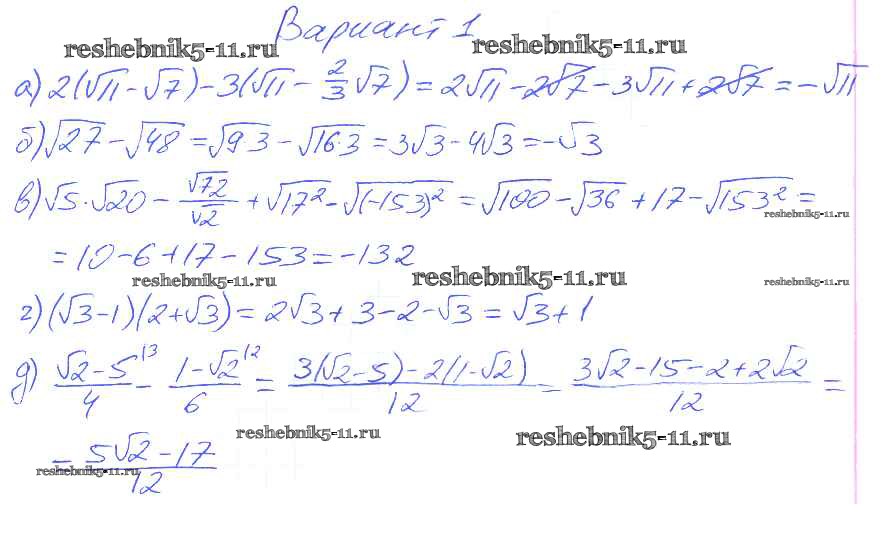 Вариант 1
reshebnik5-11.ru reshebnik5-11.ru
а) 2(√11 - √7) - 3(√11 - 2/3 √7) = 2√11 - 2√7 - 3√11 + 2√7 = -√11
б) √27 - √48 = √9·3 - √16·3 = 3√3 - 4√3 = -√3
в) √5·√20 - √72/√2 + √17² - √(-153)² = √100 - √36 + 17 - √153² =
reshebnik5-11.ru
= 10 - 6 + 17 - 153 = -132
reshebnik5-11.ru reshebnik5-11.ru reshebnik5-11.ru
г) (√3 - 1)(2 + √3) = 2√3 + 3 - 2 - √3 = √3 + 1
д) (√2 - 5)/4 |3 - (1 - √2)/6 |2 = (3(√2 - 5) - 2(1 - √2))/12 = (3√2 - 15 - 2 + 2√2)/12 =
reshebnik5-11.ru reshebnik5-11.ru
= (5√2 - 17)/12
reshebnik5-11.ru